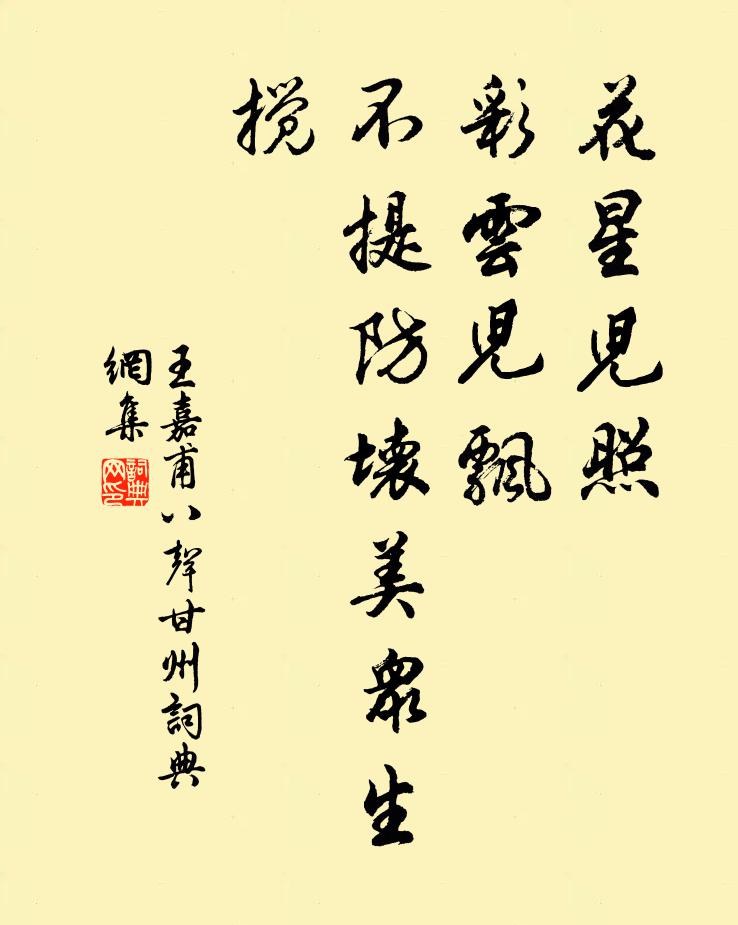 花星兒照
彩雲兒飄
不提防壞美眾生
搅
王嘉甫八聲甘州詞典
網集
詞典
网印